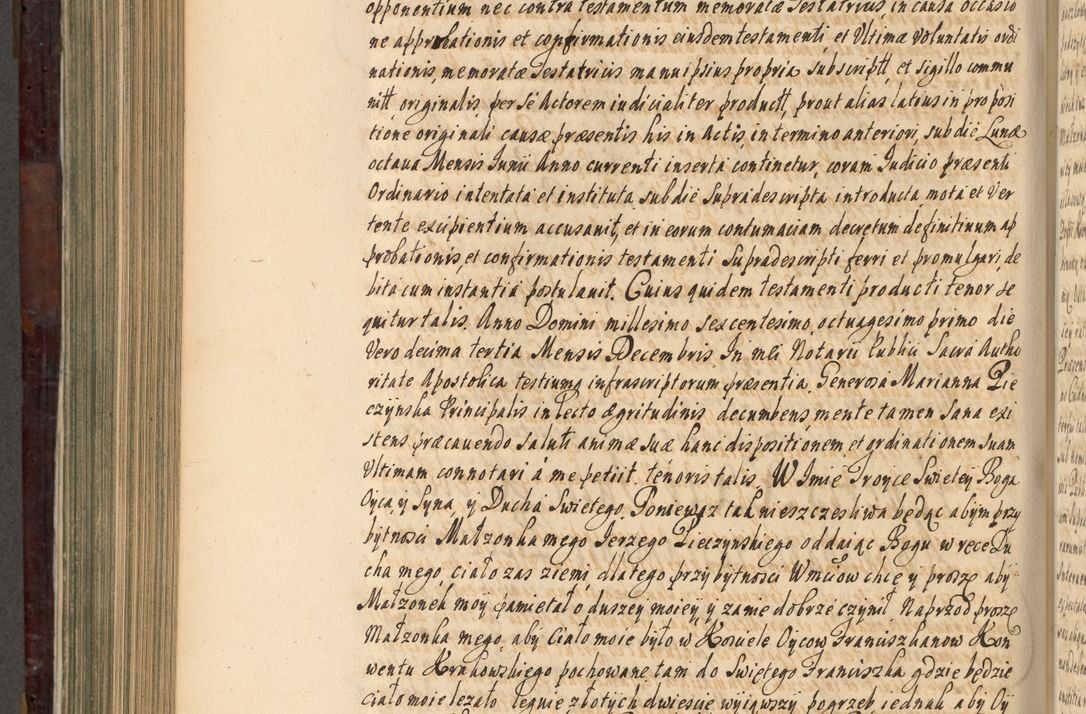 opponentium nec contra testamentum memoratæ Testatricis in causa occasio
ne approbationis et confirmationis eiusdem testamenti, et Ultimæ voluntatis ordi
nationis, memoratæ Testatricis manu ipsius propria subscriptt, et sigillo commu
nitt, originalis, per se Actorem iudicialiter productt, prout alias latius in proposi
tione originali causæ præsentis his in Actis, in termino anteriori, sub die Lunæ
octaua Mensis Iunii Anno currenti inserta continetur, coram Iudicio præsenti
Ordinario intentata et instituta, sub die supradescripta introducta, mota et ver
tente excipientium accusauit, et in eorum contumaciam decretum definitiuum ap
probationis, et confirmationis testamenti supradescripti ferri et promulgari, de
bita cum instantia postulauit. Cuius quidem testamenti producti tenor se
quitur talis. Anno Domini millesimo sexcentesimo, octuagesimo primo die
Vero decima tertia Mensis Decembris In mei Notarii Publici Sacra Autho
ritate Apostolica testiumq infrascriptorum præsentia Generosa Marianna Pie
czynska Principalis in lecto ægritudinis decumbens, mente tamen sana exi
stens præcauendo saluti animæ suæ hanc dispositionem et ordinationem suam
Ultimam connotari a me petiit. tenoris talis. W Imie Troyce Swietey Boga
Oyca, y Syna, y Ducha Swietego. Poniewąz tak nieszczesliwa będąc abym przy
bytnosci Małzonka mego Jerzego Pieczynskiego oddaiąc Bogu w rece Du
cha mego, ciało zas ziemi, dlatego przy bytnosci Wmciow chcę y proszę aby
Małzonek moy pamietał o duszey moiey, y zanie dobrze czynił Naprzod proszę
Małzonka mego, aby Ciało moie było w Kosciele Oycow Franciszkanow Kon
wentu Krakowskiego pochowane tam do Swiętego Franciszka gdzie będzie
Ciało moie lezało legnie złotych dwiescie wyiąwszy pogrzeb, iednak aby Oy